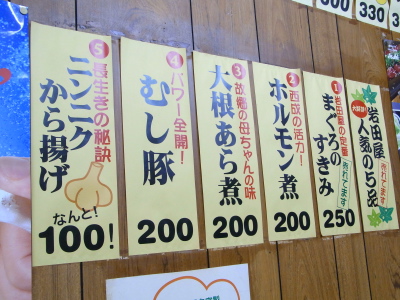 大好評!
岩田屋
人気の5品
売れてます
①岩田屋の定番
まぐろの
すきみ
売れてます
250
②西成の活力!
ホルモン煮
200
③故郷の母ちゃんの味
大根あら煮
200
④パワー全開!
むし豚
200
⑤長生きの秘訣
ニンニク
から揚げ
なんと!
100!
300
330